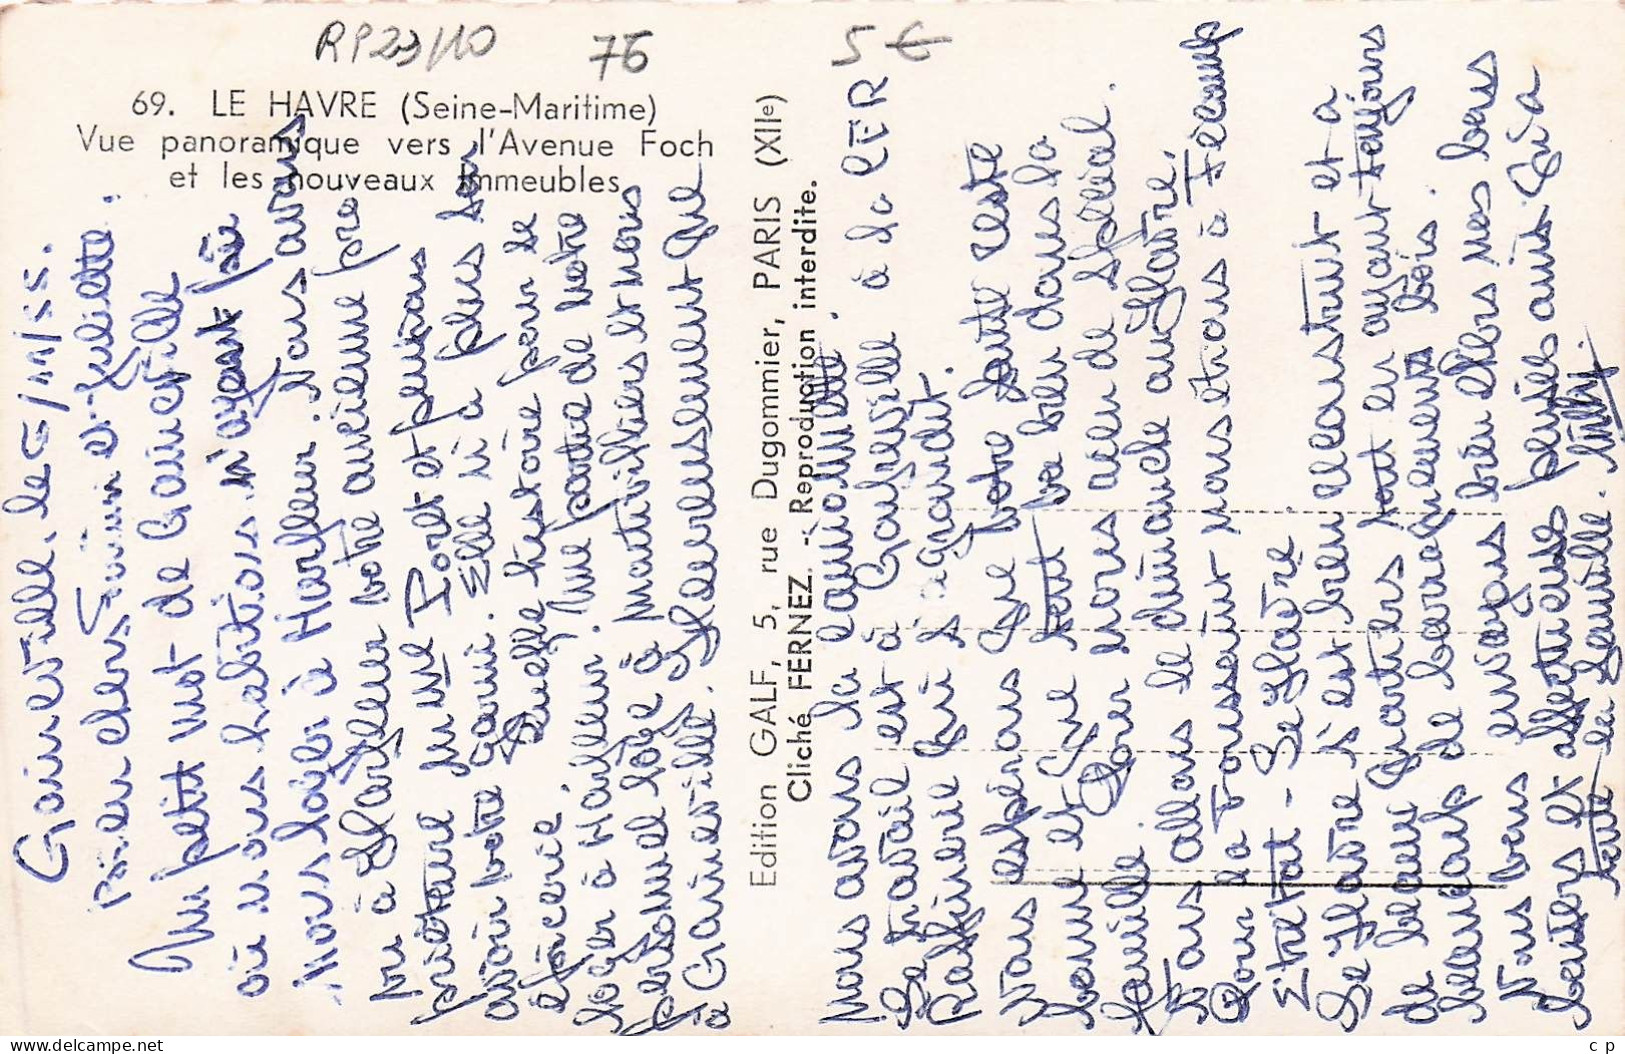 RP23/10
76
5 €
69. LE HAVRE (Seine-Maritime)
Vue panoramique vers l'Avenue Foch
et les nouveaux Immeubles
Edition GALF, 5, rue Dugommier, PARIS (XIIe)
Cliché FERNEZ. - Reproduction interdite.
Gainneville, le 6/11/55.
Bien chers et Juliette.
Un petit mot de Gainneville
où nous habitons n'ayant pû
nous loger à Harfleur. Nous avons
vu à Harfleur votre ancienne pro
priétaire sur une Port et pensions
avoir votre garni. Elle n'a plus son
épicerie. Quelle histoire pour se
loger à Harfleur. Une partie de notre
personnel loge à Montivilliers et nous
à Gainneville. Heureusement que
nous avons la camionnette.
Le travail est à Gonfreville à la CFR
Raffinerie qui s'agrandit.
Nous espérons que votre santé reste
bonne et que tout va bien dans la
famille. Pour nous rien de spécial.
Nous allons le dimanche au Havre.
Pour la Toussaint nous étions à Fécamp
Etretat - Le Havre
Le Havre s'est bien reconstruit et a
de beaux quartiers tout en ayant toujours
beaucoup de baraquements bois.
Nous vous envoyons bien chers nos bons
baisers et affectueuses pensées ainsi qu'à
toute la famille.